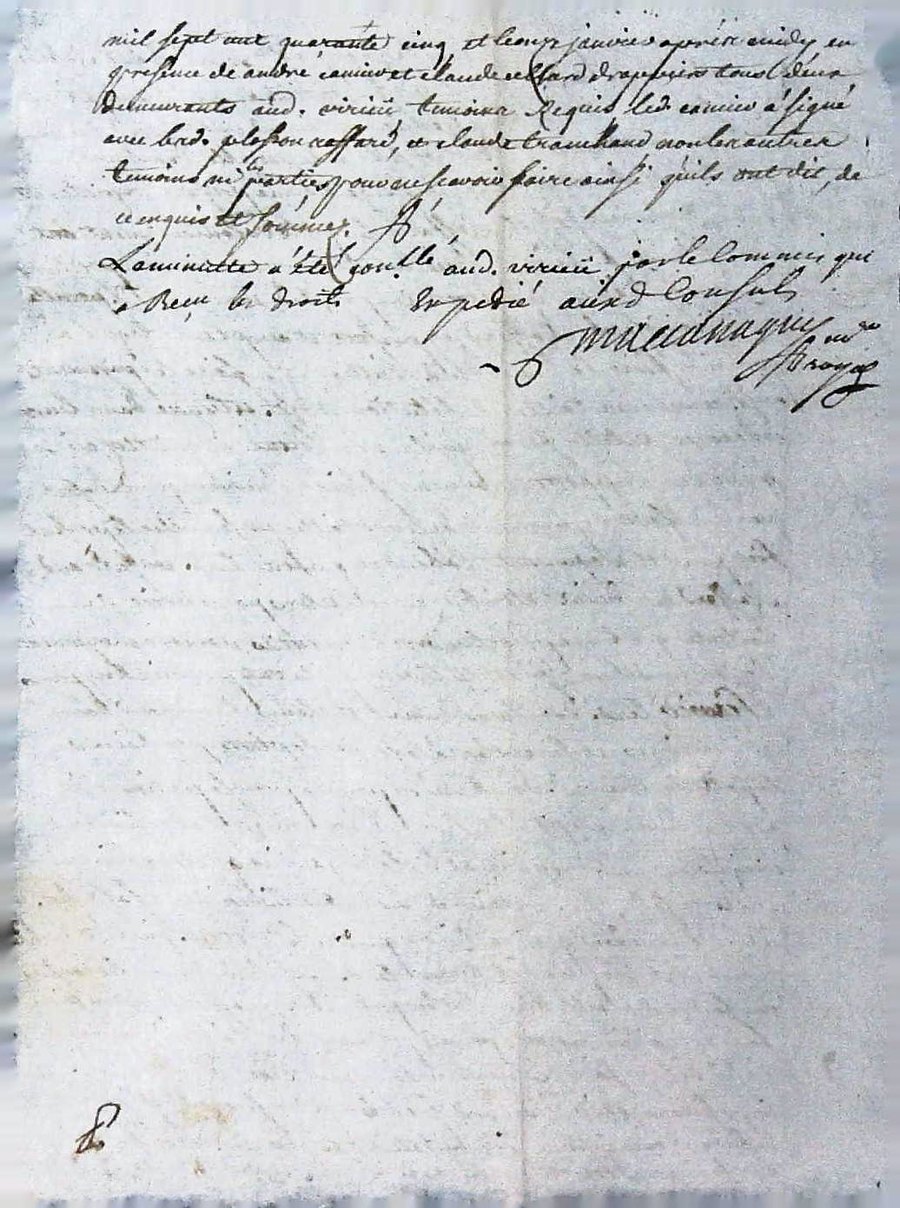 mil sept cent quarante cinq et le onze janvier après midy en
presence de andré camier et claude cellard drappiers tous deux
demeurants aud. virieü temoins Requis led. camier a signé
avec led. plasson raffard, et claude tranchand non les autres
temoins ni les parties pour ne scavoir faire ainsi qu'ils ont dit, de
ce enquis et sommés.
La minutte a été contllé aud. virieü par le Commis qui
a Recu les droits Expedié auxd Consuls